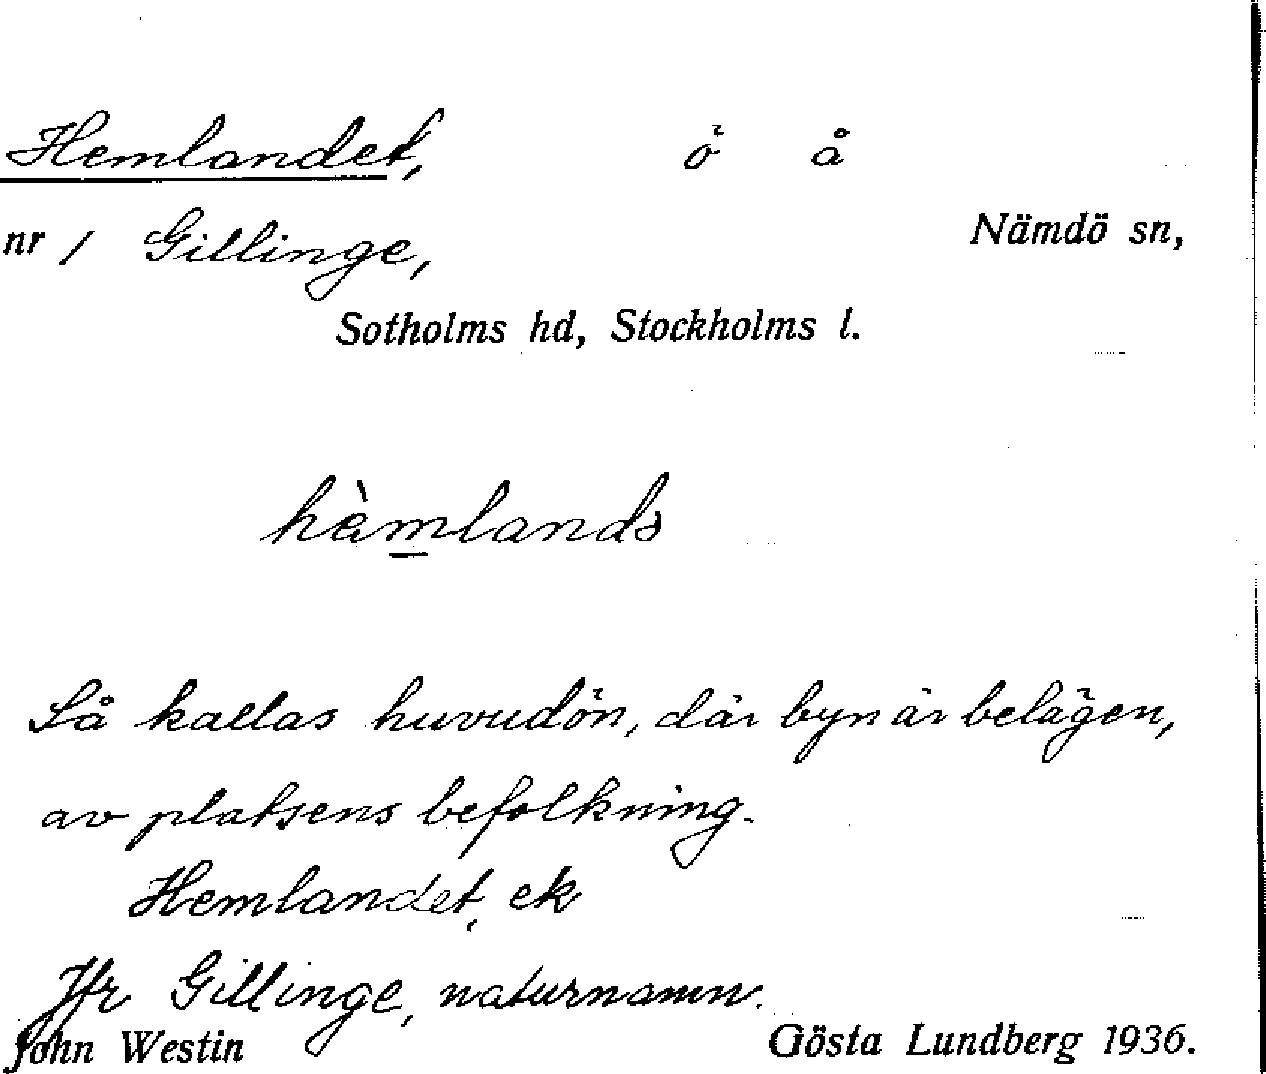 Hemlandet, ö å
nr 1 Gillinge, Nämdö sn,
Sotholms hd, Stockholms l.
hèmlands
Så kallas huvudön, där byn är belägen,
av platsens befolkning.
Hemlandet, ek
Jfr Gillinge, naturnamn.
John Westin Gösta Lundberg 1936.